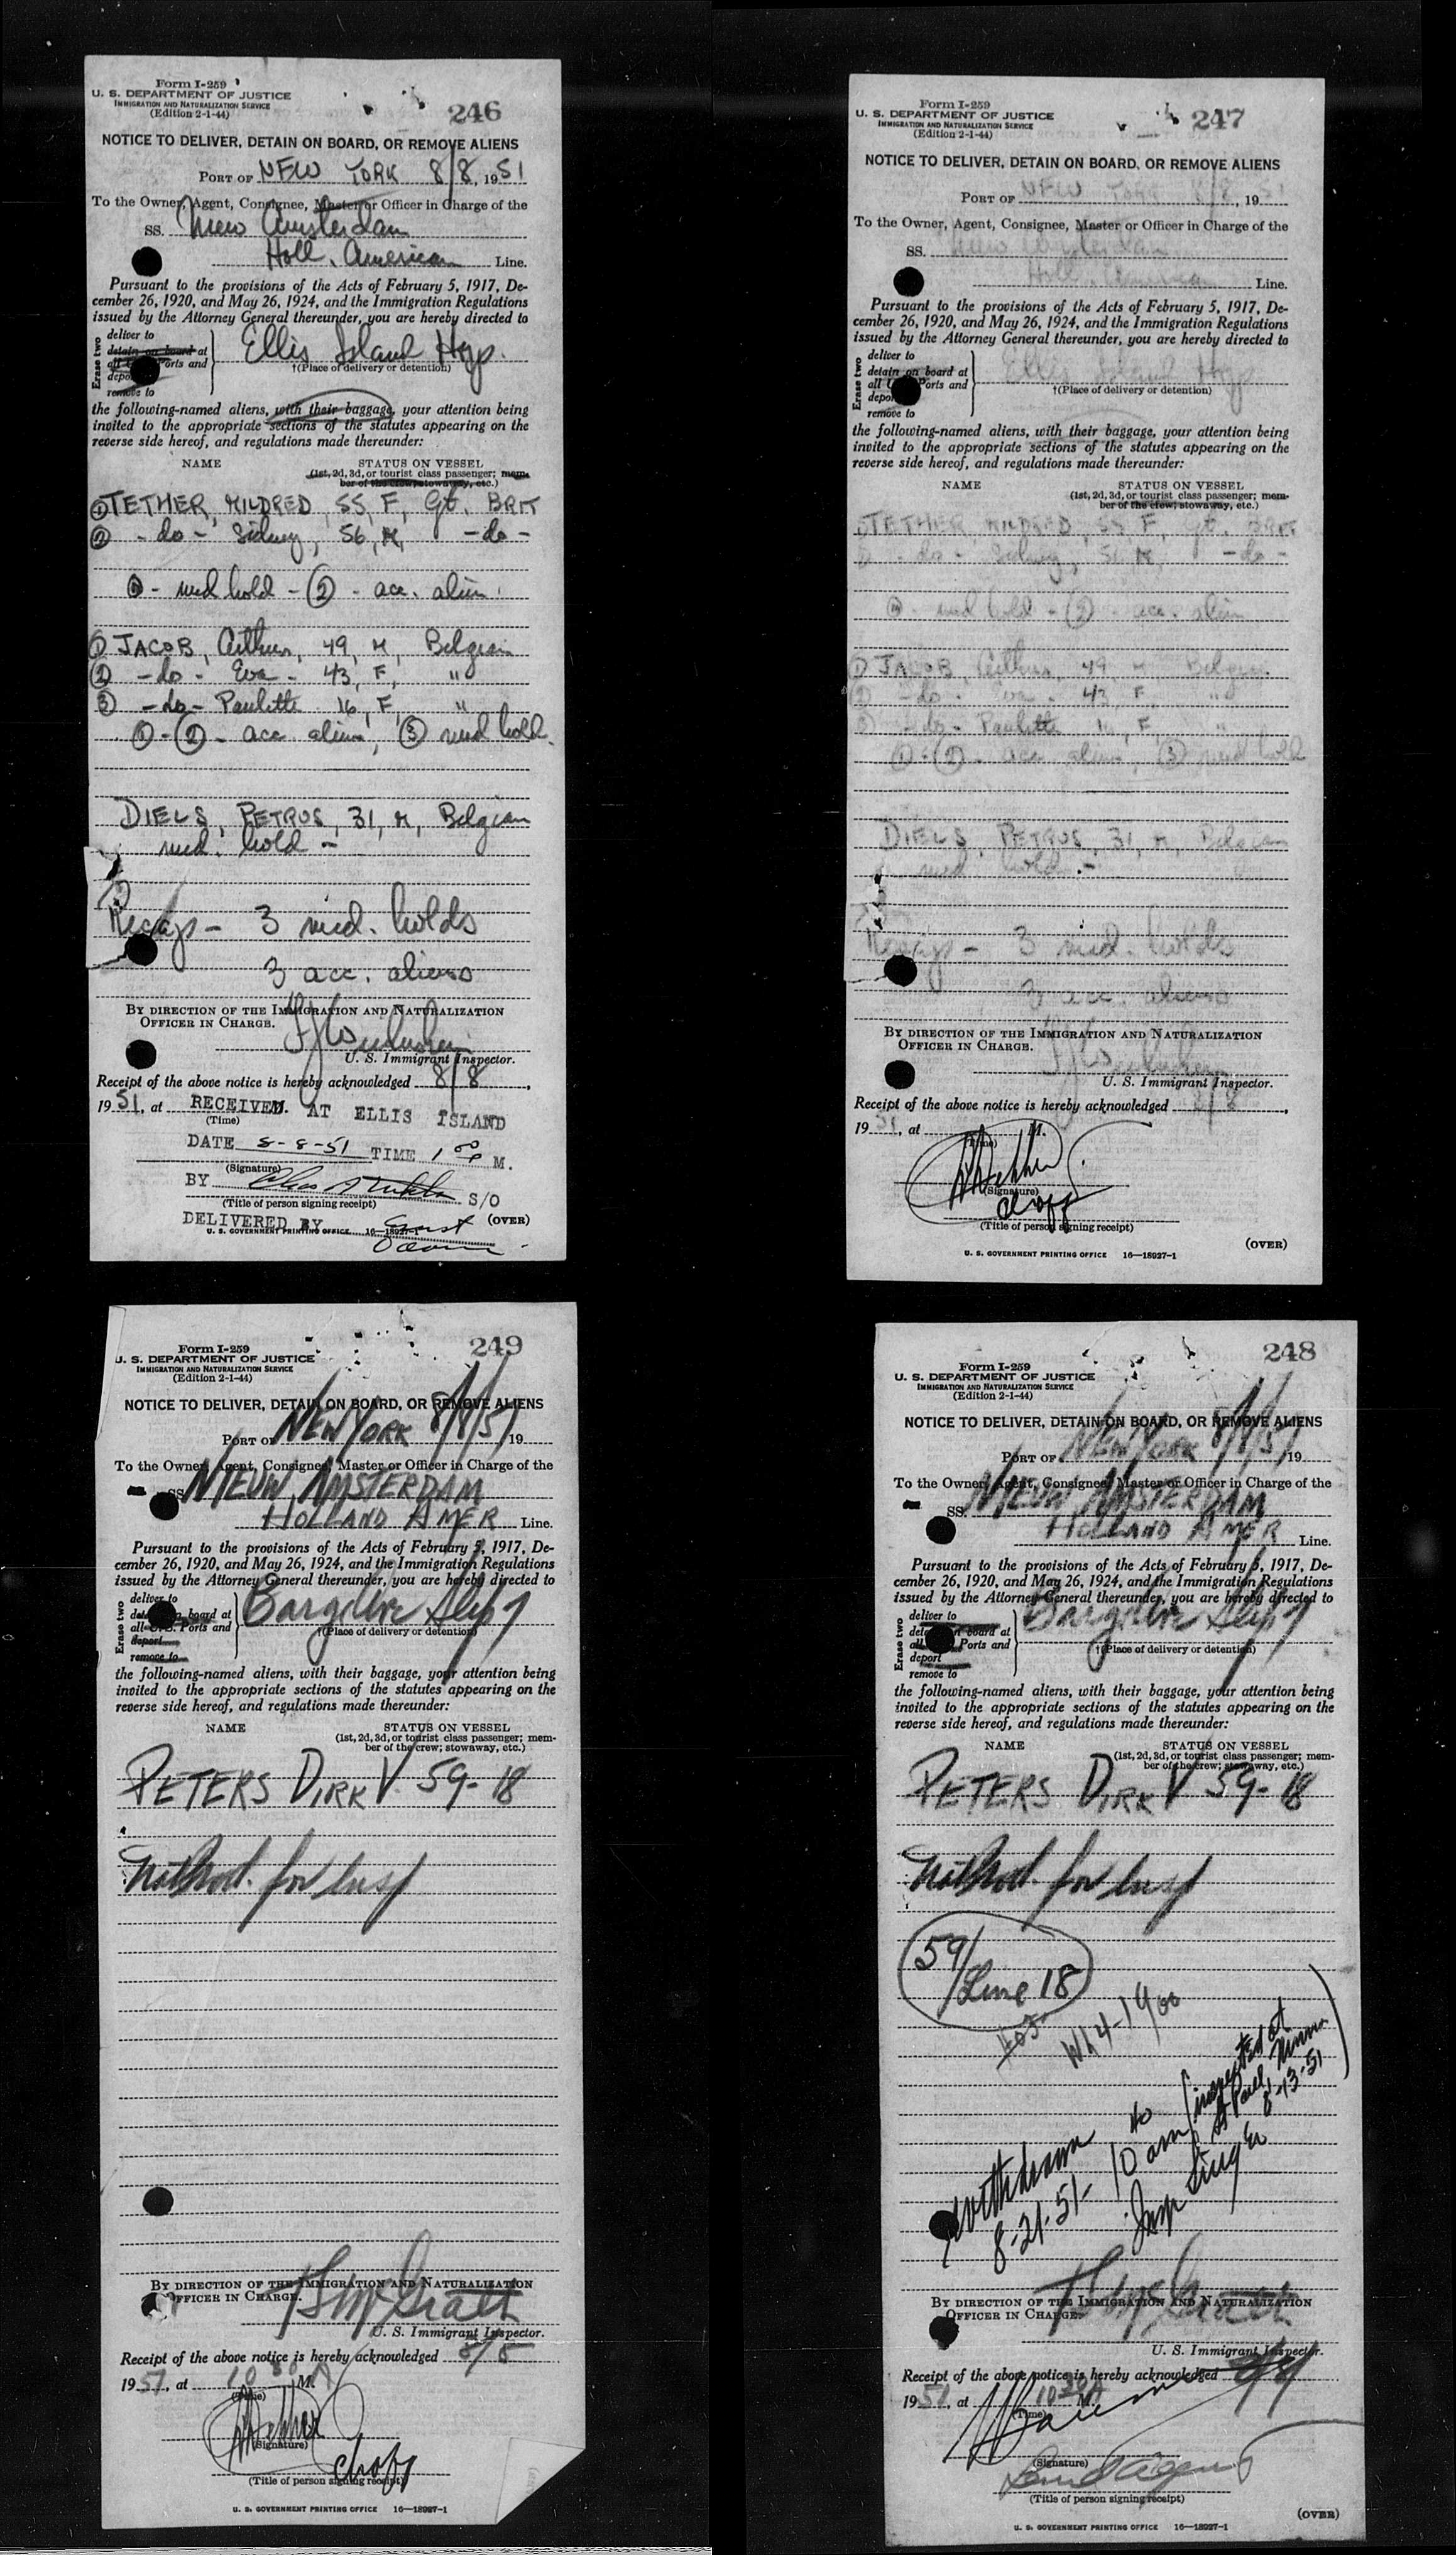 Form I-259
U. S. DEPARTMENT OF JUSTICE
IMMIGRATION AND NATURALIZATION SERVICE
(Edition 2-1-44)
246
NOTICE TO DELIVER, DETAIN ON BOARD, OR REMOVE ALIENS
PORT OF NEW YORK 8/8, 1951
To the Owner, Agent, Consignee, Master or Officer in Charge of the
SS. Nieuw Amsterdam
Holl. American Line.
Pursuant to the provisions of the Acts of February 5, 1917, De-
cember 26, 1920, and May 26, 1924, and the Immigration Regulations
issued by the Attorney General thereunder, you are hereby directed to
Erase two
deliver to
detain on board at
all U.S. Ports and
deport
remove to
Ellis Island Hosp.
†(Place of delivery or detention)
the following-named aliens, with their baggage, your attention being
invited to the appropriate sections of the statutes appearing on the
reverse side hereof, and regulations made thereunder:
NAME STATUS ON VESSEL
(1st, 2d, 3d, or tourist class passenger; mem-
ber of the crew; stowaway, etc.)
① TETHER, MILDRED, 55, F, Gt. BRIT
② - do - Sidney, 56, M, - do -
① - med hold - ② - acc. alien
① JACOB, Arthur, 49, M, Belgian
② - do - Eva - 43, F, "
③ - do - Paulette 16, F, "
① - ② - acc aliens, ③ med hold.
DIELS, PETRUS, 31, M, Belgian
med. hold -
Recap - 3 med. holds
3 acc. aliens
BY DIRECTION OF THE IMMIGRATION AND NATURALIZATION
OFFICER IN CHARGE.
U. S. Immigrant Inspector.
Receipt of the above notice is hereby acknowledged 8/8,
1951, at RECEIVED AT ELLIS ISLAND
(Time)
DATE 8-8-51 TIME 1 00 P M.
(Signature)
BY S/O
(Title of person signing receipt)
DELIVERED BY Ernst (OVER)
U. S. GOVERNMENT PRINTING OFFICE 16—18927-1
Form I-259
U. S. DEPARTMENT OF JUSTICE
IMMIGRATION AND NATURALIZATION SERVICE
(Edition 2-1-44)
247
NOTICE TO DELIVER, DETAIN ON BOARD, OR REMOVE ALIENS
PORT OF NEW YORK 8/8, 1951
To the Owner, Agent, Consignee, Master or Officer in Charge of the
SS. Nieuw Amsterdam
Holl. American Line.
Pursuant to the provisions of the Acts of February 5, 1917, De-
cember 26, 1920, and May 26, 1924, and the Immigration Regulations
issued by the Attorney General thereunder, you are hereby directed to
Erase two
deliver to
detain on board at
all U.S. Ports and
deport
remove to
Ellis Island Hosp
†(Place of delivery or detention)
the following-named aliens, with their baggage, your attention being
invited to the appropriate sections of the statutes appearing on the
reverse side hereof, and regulations made thereunder:
NAME STATUS ON VESSEL
(1st, 2d, 3d, or tourist class passenger; mem-
ber of the crew; stowaway, etc.)
① TETHER, MILDRED, 55, F, Gt. BRIT
② - do - Sidney, 56, M, - do -
① - med hold - ② - acc. alien
① JACOB, Arthur, 49, M Belgian
② - do - Eva - 43, F, "
③ - do - Paulette 16, F, "
① - ② - acc aliens, ③ med hold
DIELS, PETRUS, 31, M, Belgian
med hold -
Recap - 3 med. holds
3 acc. aliens
BY DIRECTION OF THE IMMIGRATION AND NATURALIZATION
OFFICER IN CHARGE.
U. S. Immigrant Inspector.
Receipt of the above notice is hereby acknowledged 8/8,
1951, at M.
(Time)
(Signature)
(Title of person signing receipt)
(OVER)
U. S. GOVERNMENT PRINTING OFFICE 16—18927-1
Form I-259
U. S. DEPARTMENT OF JUSTICE
IMMIGRATION AND NATURALIZATION SERVICE
(Edition 2-1-44)
249
NOTICE TO DELIVER, DETAIN ON BOARD, OR REMOVE ALIENS
PORT OF NEW YORK 8/8/51 19
To the Owner, Agent, Consignee, Master or Officer in Charge of the
SS NIEUW AMSTERDAM
HOLLAND AMER Line.
Pursuant to the provisions of the Acts of February 5, 1917, De-
cember 26, 1920, and May 26, 1924, and the Immigration Regulations
issued by the Attorney General thereunder, you are hereby directed to
Erase two
deliver to
detain on board at
all U.S. Ports and
deport
remove to
†(Place of delivery or detention)
the following-named aliens, with their baggage, your attention being
invited to the appropriate sections of the statutes appearing on the
reverse side hereof, and regulations made thereunder:
NAME STATUS ON VESSEL
(1st, 2d, 3d, or tourist class passenger; mem-
ber of the crew; stowaway, etc.)
PETERS DIRK V. 59-18
for insp
BY DIRECTION OF THE IMMIGRATION AND NATURALIZATION
OFFICER IN CHARGE.
U. S. Immigrant Inspector.
Receipt of the above notice is hereby acknowledged 8/8
1951, at 10 30 A M.
(Time)
(Signature)
(Title of person signing receipt)
U. S. GOVERNMENT PRINTING OFFICE 16—18927-1
Form I-259
U. S. DEPARTMENT OF JUSTICE
IMMIGRATION AND NATURALIZATION SERVICE
(Edition 2-1-44)
248
NOTICE TO DELIVER, DETAIN ON BOARD, OR REMOVE ALIENS
PORT OF NEW YORK 8/8/51 19
To the Owner, Agent, Consignee, Master or Officer in Charge of the
SS. NIEUW AMSTERDAM
HOLLAND AMER Line.
Pursuant to the provisions of the Acts of February 5, 1917, De-
cember 26, 1920, and May 26, 1924, and the Immigration Regulations
issued by the Attorney General thereunder, you are hereby directed to
Erase two
deliver to
detain on board at
all U.S. Ports and
deport
remove to
†(Place of delivery or detention)
the following-named aliens, with their baggage, your attention being
invited to the appropriate sections of the statutes appearing on the
reverse side hereof, and regulations made thereunder:
NAME STATUS ON VESSEL
(1st, 2d, 3d, or tourist class passenger; mem-
ber of the crew; stowaway, etc.)
PETERS DIRK V 59-18
for insp
59/
Line 18
WH4-1900
(inspected at
St Paul, Minn
8-13-51)
withdrawn
8-21-51- 10 am
Insp
BY DIRECTION OF THE IMMIGRATION AND NATURALIZATION
OFFICER IN CHARGE.
U. S. Immigrant Inspector.
Receipt of the above notice is hereby acknowledged 8/8
1951, at 10 30 A M.
(Time)
(Signature)
(Title of person signing receipt)
(OVER)
U. S. GOVERNMENT PRINTING OFFICE 16—18927-1